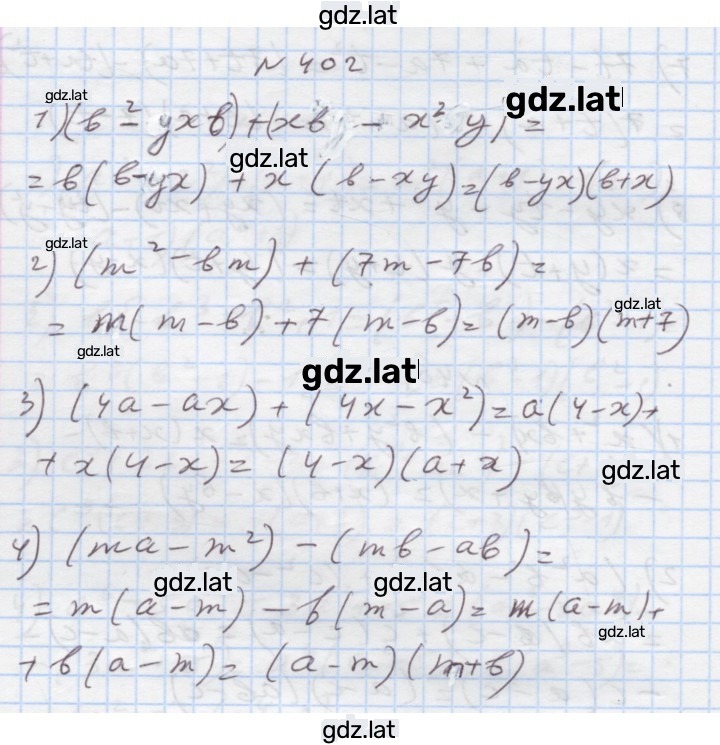 gdz.lat
N 402
gdz.lat
gdz.lat
1) (в² - yxв) + (xв - x² y) =
gdz.lat
= в(в-yx) + x (в-xy) = (в-yx)(в+x)
gdz.lat
2) (m² - вm) + (7m - 7в) =
gdz.lat
= m(m-в) + 7(m-в) = (m-в)(m+7)
gdz.lat
gdz.lat
3) (4a - ax) + (4x - x²) = a(4-x) +
+ x(4-x) = (4-x)(a+x)
gdz.lat
4) (ma - m²) - (mв - aв) =
gdz.lat gdz.lat
= m(a-m) - в(m-a) = m(a-m) +
gdz.lat
+ в(a-m) = (a-m)(m+в)
gdz.lat